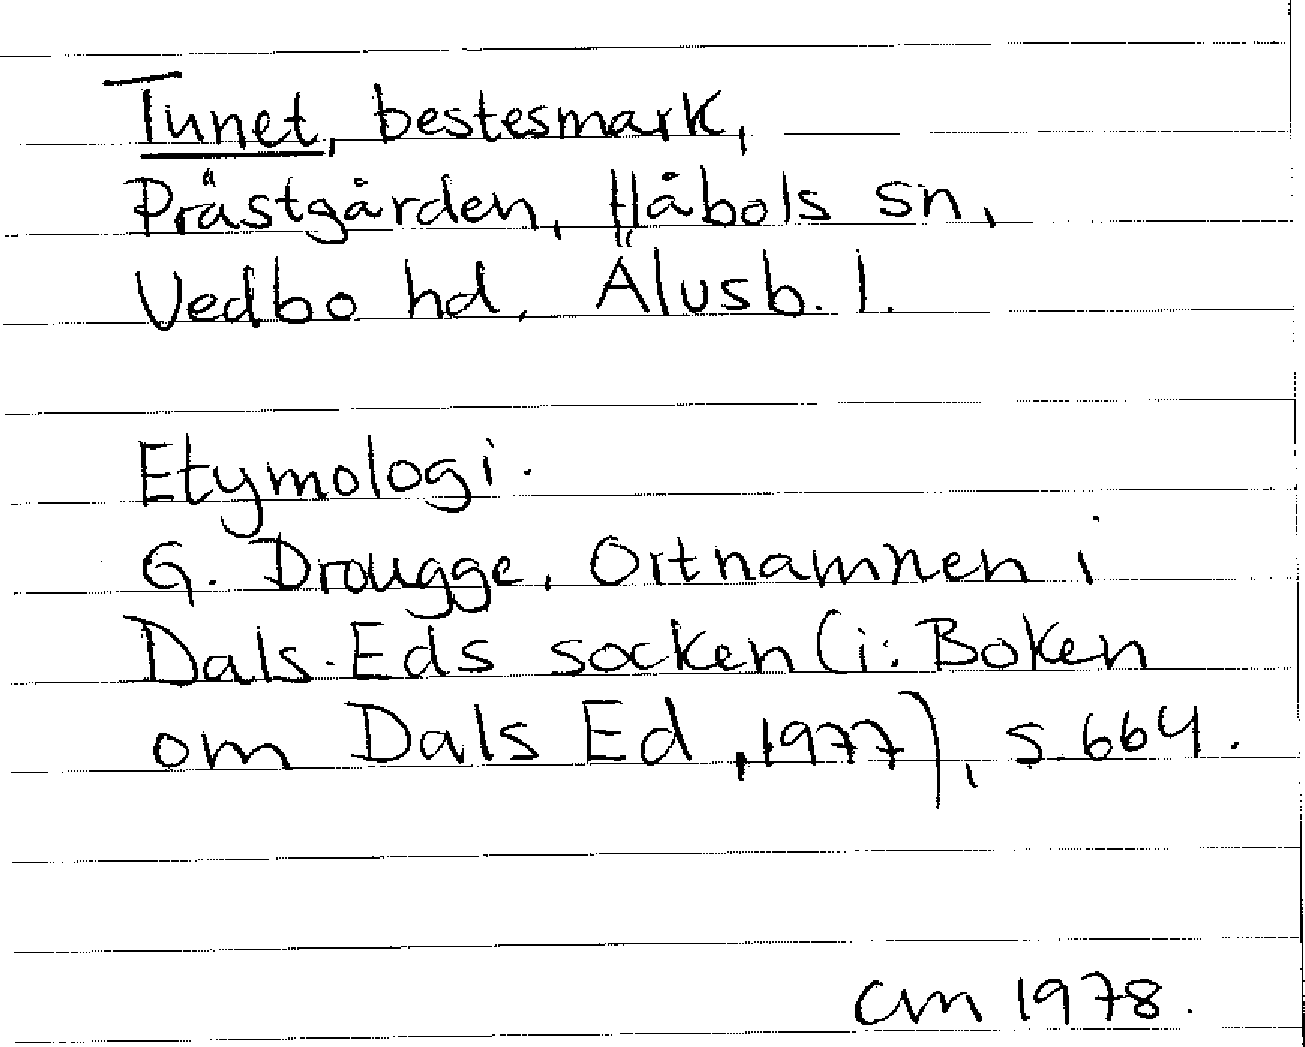 Tunet, bestesmark,
Prästgården, Håbols sn,
Vedbo hd, Älvsb. l.
Etymologi.
G. Drougge, Ortnamnen i
Dals-Eds socken (i: Boken
om Dals Ed, 1977), s. 664.
CM 1978.